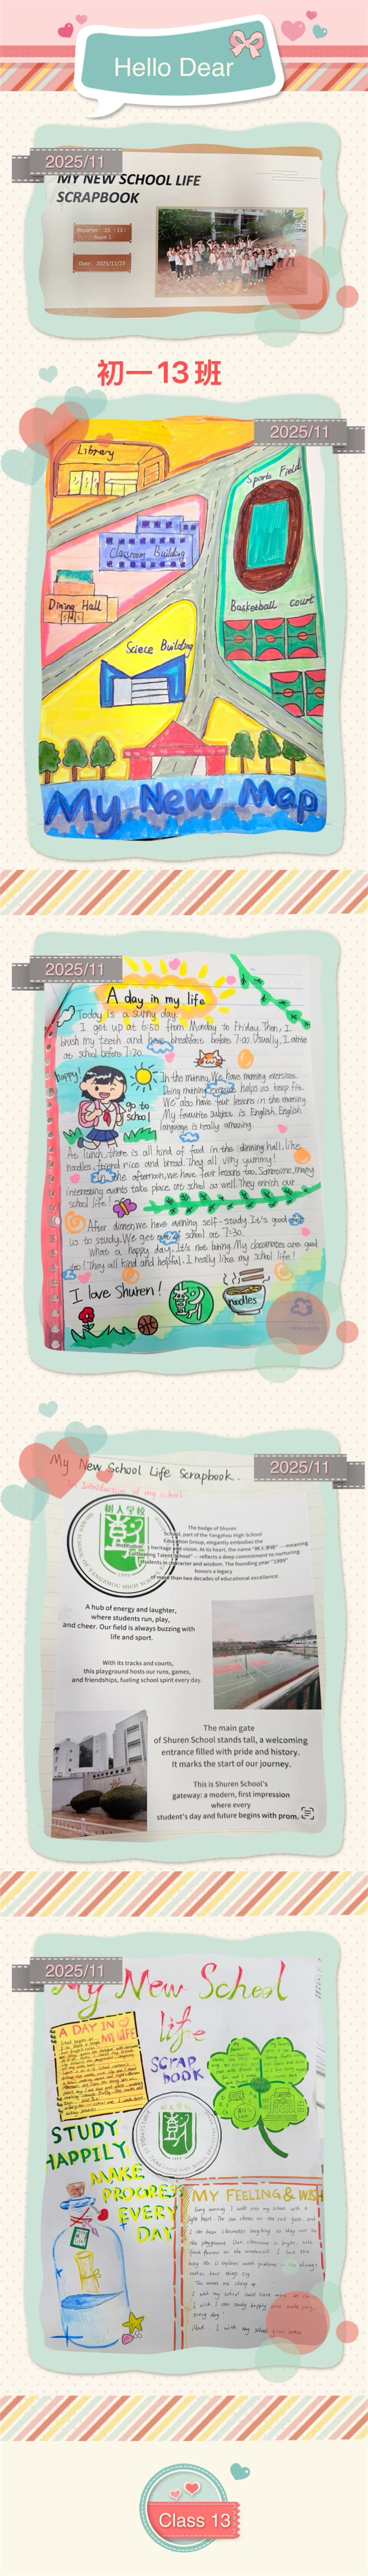 Hello Dear
2025/11
MY NEW SCHOOL LIFE
SCRAPBOOK
Reporter: 25 (13)
Team 1
Date: 2025/11/23
初一13班
2025/11
Library
Sports Field
Classroom Building
Dining Hall
Basketball Court
Sciece Building
My New Map
2025/11
A day in my life
Today is a sunny day.
I get up at 6:50 from Monday to Friday. Then, I
brush my teeth and have breakfast before 7:00. Usually, I arrive
at school before 7:30.
happy!
go to
school
In the morning, We have morning exercises.
Doing morning exercises helps us keep fit.
We also have four lessons in the morning.
My favourite subject is English. English
language is really amazing.
At lunch, there is all kind of food in the dinning hall, like
noodles, friend rice and bread. They all very yummy!
In the afternoon, we have four lessons too. Sometime, many
interesting events take place at school as well. They enrich our
school life!
After dinner, we have evening self-study. It's good for
us to study. We get school at 7:30.
What a happy day. It's not boring. My classmates are good
too! They all kind and helpful. I really like my school life!
I love Shuren!
noodles
2025/11
My New School Life Scrapbook.
Introduction of my school
树人学校
The badge of Shuren
School, part of Yangzhou High School
Education Group, elegantly embodies the
institution's heritage and vision. At its heart, the name "树人学校" – meaning
"Cultivating Talent School" – reflects a deep commitment to nurturing
students in character and wisdom. The founding year "1999"
honors a legacy
of more than two decades of educational excellence.
A hub of energy and laughter,
where students run, play,
and cheer. Our field is always buzzing with
life and sport.
With its tracks and courts,
this playground hosts our runs, games,
and friendships, fueling school spirit every day.
The main gate
of Shuren School stands tall, a welcoming
entrance filled with pride and history.
It marks the start of our journey.
This is Shuren School's
gateway: a modern, first impression
where every
student's day and future begins with prom
2025/11
My New School
life
A DAY IN
MY LIFE
SCRAP
BOOK
STUDY
HAPPILY
MAKE
PROGRESS
EVERY
DAY
MY FEELING & WISH
Class 13